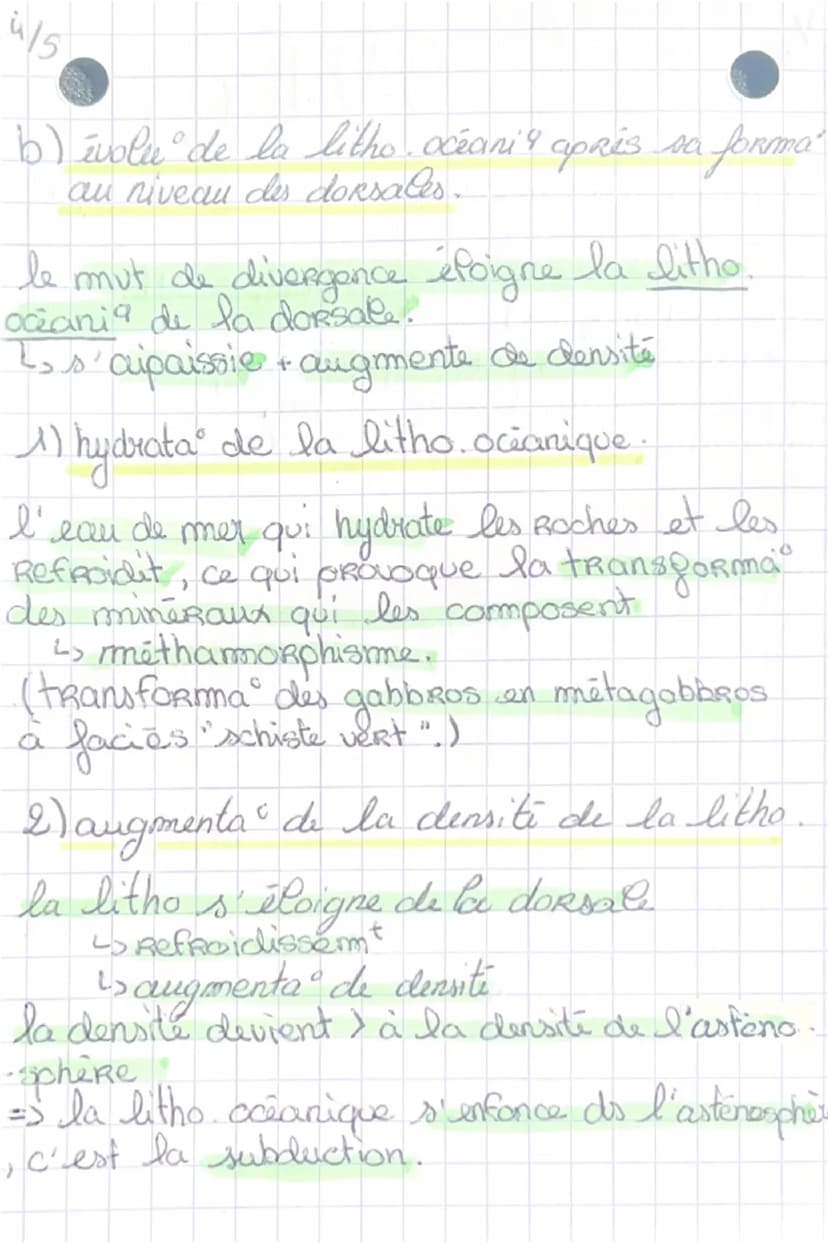 4/5
b) évolu° de la litho. océaniq après sa forma°
au niveau des dorsales.
le mvt de divergence éloigne la litho.
océaniq de la dorsale.
↳ s'aipaissie + augmente de densité
1) hydrata° de la litho. océanique.
l'eau de mer qui hydrate les roches et les
refroidit, ce qui provoque la transforma°
des minéraux qui les composent
↳ méthamorphisme.
(transforma° des gabbros en métagabbros
à faciès "schiste vert".)
2) augmenta° de la densité de la litho.
la litho s'éloigne de la dorsale
↳ refroidissemt
↳ augmenta° de densité
la densité devient > à la densité de l'asténo-
-sphère
=> la litho. océanique s'enfonce ds l'asténosphère
, c'est la subduction.